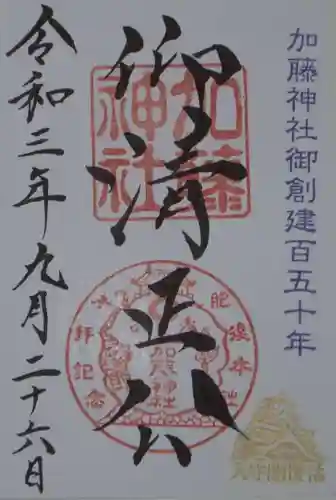 加藤神社御創建百五十年
御清正公
加藤神社
肥後本妙
拝記念
加藤神社
令和三年九月二十六日
天守閣復活